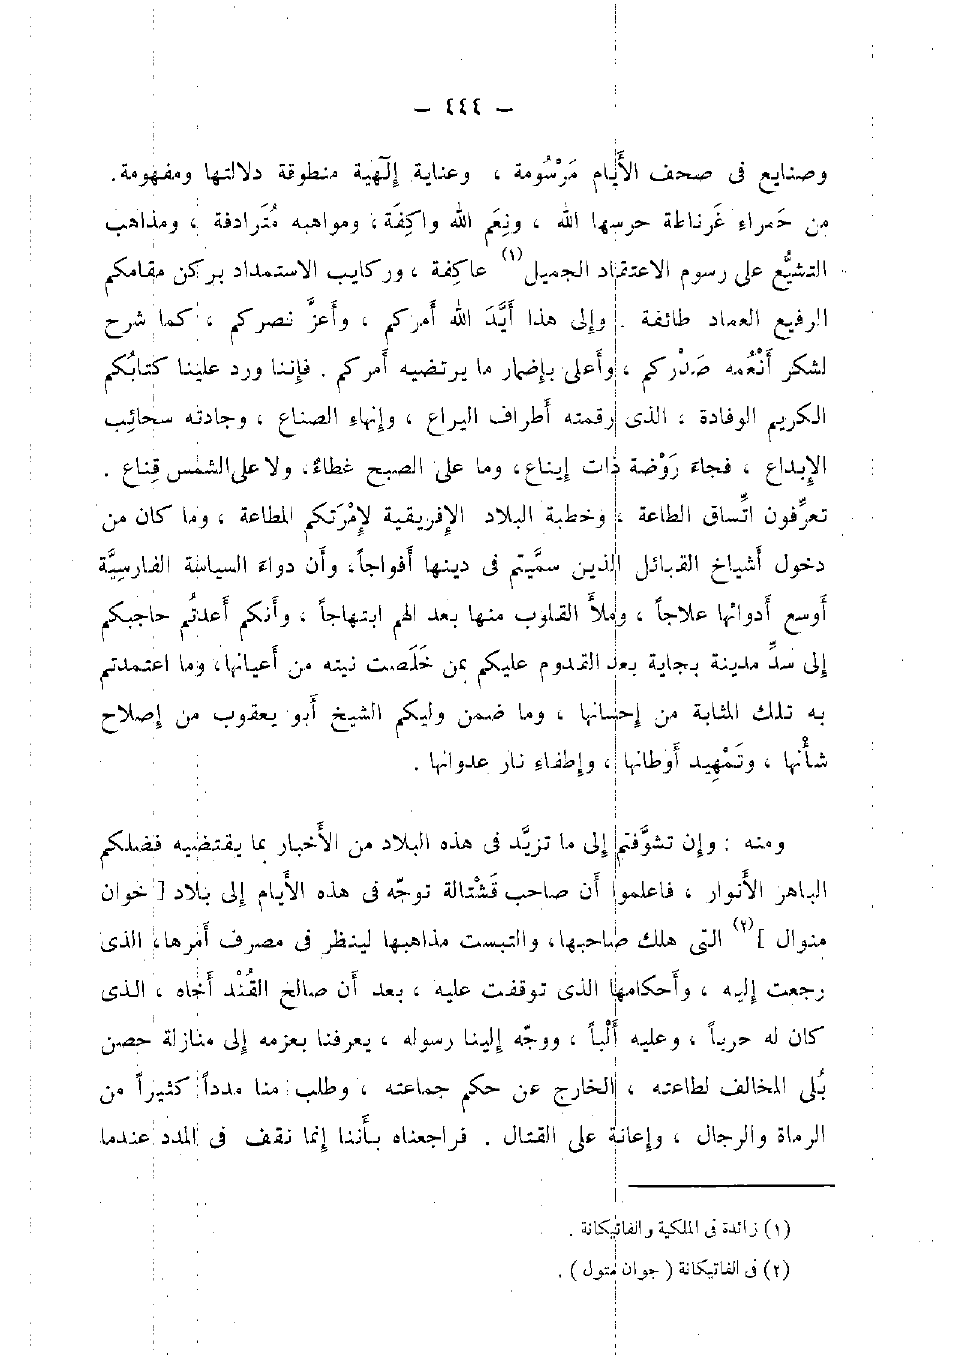 — ٤٤٤ —
وصنايع فى صحف الأَيام مَرْسُومة ، وعناية إلَهية منطوقة دلالتها ومفهومة .
من حَمراء غَرناطة حرسها الله ، ونِعَم الله واكِفَة ، ومواهبه مُتَرادفة ، ومذاهب
التشيُّع على رسوم الاعتقاد الجميل(١) عاكِفة ، وركايب الاستمداد بركن مقامكم
الرفيع العماد طائفة . وإلى هذا أَيَّدَ الله أَمركم ، وأَعزَّ نصركم ، كما شرح
لشكر أَنْعُمه صَدْركم ، وأَعلى بإضمار ما يرتضيه أَمركم . فإننا ورد علينا كتابُكم
الكريم الوفادة ، الذى رقمته أطراف اليراع ، وإنهاء الصناع ، وجادته سحائِب
الإبداع ، فجاءَ رَوْضة ذات إيناع ، وما على الصبح غطاءٌ ، ولا على الشمس قِناع .
تعرِّفون اتِّساق الطاعة ، وخطبة البلاد الإفريقية لإمْرَتكم المطاعة ، وما كان من
دخول أَشياخ القبائل الذين سمَّيتم فى دينها أَفواجاً ، وأَن دواءَ السياسة الفارسِيَّة
أَوسع أَدوائها علاجاً ، وملأَ القلوب منها بعد الهم ابتهاجاً ، وأَنكم أَعدتُم حاجبكم
إلى سدِّ مدينة بجاية بعد القدوم عليكم بمن خَلَصت نيته من أَعيانها ، وما اعتمدتم
به تلك المثابة من إحسانها ، وما ضمن وليكم الشيخ أَبو يعقوب من إصلاح
شأْنها ، وتَمْهِيد أَوطانها ، وإطفاءِ نار عدوانها .
ومنه : وإن تشوَّفتم إلى ما تزيَّد فى هذه البلاد من الأَخبار بما يقتضيه فضلكم
الباهر الأَنوار ، فاعلموا أَن صاحب قَشْتالة توجّه فى هذه الأَيام إلى بلاد [ خوان
منوال ](٢) التى هلك صاحبها ، والتبست مذاهبها لينظر فى مصرف أَمرها ، الذى
رجعت إليه ، وأَحكامها الذى توقفت عليه ، بعد أَن صالح القُنْد أَخاه ، الذى
كان له حرباً ، وعليه أَلْباً ، ووجّه إلينا رسوله ، يعرفنا بعزمه إلى منازلة حصن
بُلى المخالف لطاعته ، الخارج عن حكم جماعته ، وطلب منا مدداً كثيراً من
الرماة والرجال ، وإعانة على القتال . فراجعناه بأَننا إنما نقف فى المدد عندما
(١) زائدة فى الملكية والفاتيكانة .
(٢) فى الفاتيكانة ( جوان متول ) .